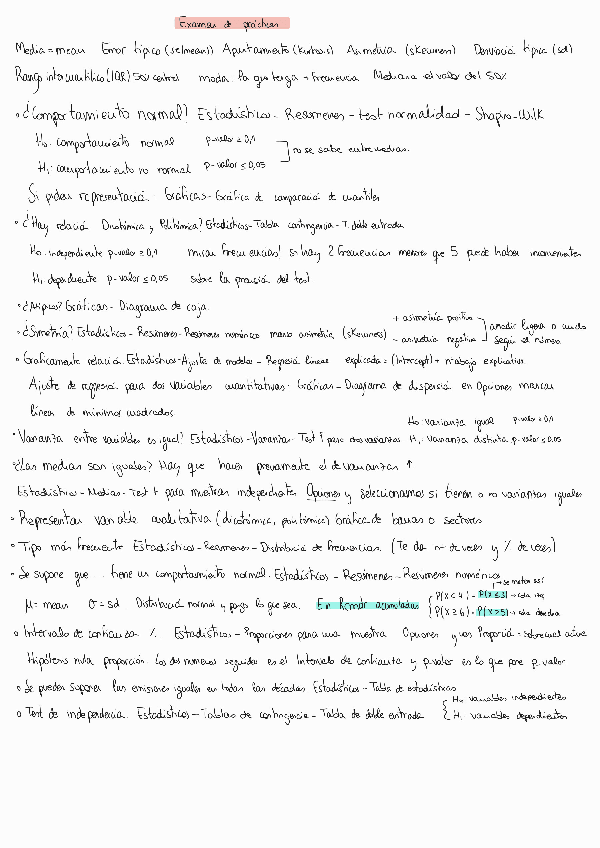 Examen de prácticas
Media = mean Error típico (se(mean)) Apuntamiento (kurtosis) Asimetría (skewness) Desviació típica (sd)
Rango intercuartílico (IQR) 50% central moda la q tenga + frecuencia Mediana el valor del 50%
• ¿Comportamiento normal? Estadísticos - Resúmenes - test normalidad - Shapiro-Wilk
H₀: comportamiento normal p-valor ≥ 0,1
no se sabe entre medias.
H₁: comportamiento no normal p-valor ≤ 0,05
Si piden representació Gráficas - Gráfica de comparació de cuantiles
• ¿Hay relació Dicotómica y Politómica? Estadísticos - Tabla contingencia - T. doble entrada
H₀: independiente p-valor ≥ 0,1 mirar frecuencias! si hay 2 frecuencias menores que 5 puede haber
H₁ dependiente p-valor ≤ 0,05 sobre la precisió del test
• ¿Atípicos? Gráficas - Diagrama de caja
+ asimetría positiva
• ¿Simetría? Estadísticos - Resúmenes - Resúmenes numéricos marco asimetría (skewness) añadir ligera o mucho
- asimetría negativa según el número
• Gráficamente relació Estadísticos - Ajuste de modelos - Regresió lineal explicada = (Intercept) + nº abajo explicativa
Ajuste de regresió para dos variables cuantitativas - Gráficas - Diagrama de dispersió en Opciones marcar
línea de mínimos cuadrados
H₀ varianza igual p-valor ≥ 0,1
• Varianza entre variables es igual? Estadísticos - Varianzas - Test F para dos varianzas H₁ varianza distinta p-valor ≤ 0,05
• ¿Las medias son iguales? Hay que hacer previamente el de varianzas ↑
Estadísticos - Medias - Test t para muestras independientes Opciones y seleccionamos si tienen o no varianzas iguales
• Representar variable cualitativa (dicotómica, politómica) Gráfica de barras o sectores
• Tipo más frecuente Estadísticos - Resúmenes - Distribució de frecuencias. (Te da nº de veces y % de veces)
• Se supone que tiene un comportamiento normal. Estadísticos - Resúmenes - Resúmenes numéricos
→ se meten así
μ = mean σ = sd Distribució normal y pongo lo que sea. En Rcmdr acumuladas P(X < 4) = P(X ≤ 3) → cola izq
P(X ≥ 6) = P(X > 5) → cola derecha
• Intervalo de confianza % Estadísticos - Proporciones para una muestra Opciones y en Proporció
Hipótesis nula proporción. Los dos números seguidos es el Intervalo de confianza y p-valor es lo que pone p.valor
• Se pueden suponer las emisiones iguales en todas las décadas Estadísticos - Tabla de estadísticas
H₀ variables independientes
• Test de independencia Estadísticos - Tablas de contingencia - Tabla de doble entrada
H₁ variables dependientes